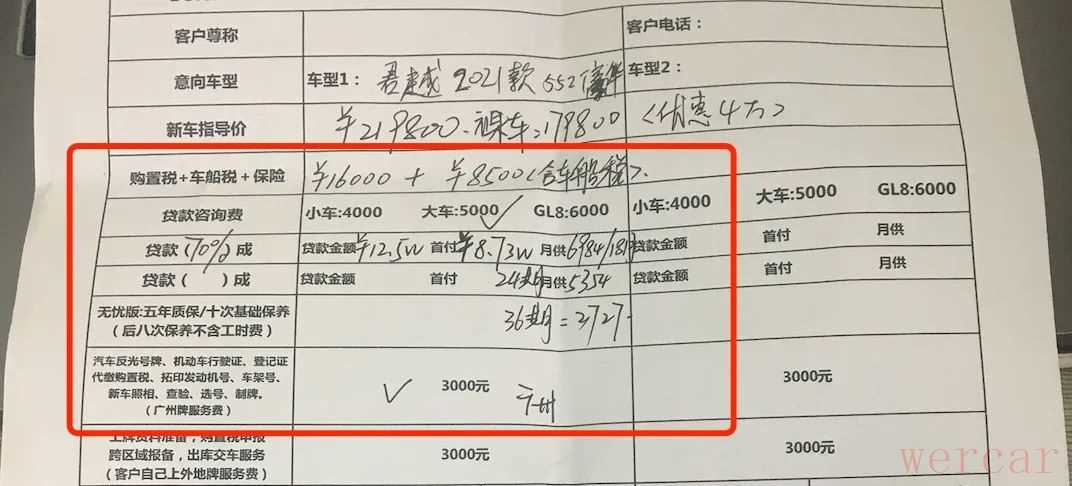 客户尊称 客户电话：
意向车型 车型1： 君越 2021款 552豪华 车型2：
新车指导价 ¥219800、裸车：179800 〈优惠4万〉
购置税+车船税+保险 ¥16000 + ¥8500〈含车船税〉.
贷款咨询费 小车:4000 大车:5000 ✓ GL8:6000 小车:4000 大车:5000 GL8:6000
贷款(70%)成 贷款金额¥12.5W 首付¥8.73W 月供6984/18期 贷款金额 首付 月供
贷款( )成 贷款金额 首付 24期月供5354 贷款金额 首付 月供
无忧版:五年质保/十次基础保养
（后八次保养不含工时费） 36期=3727
汽车反光号牌、机动车行驶证、登记证
代缴购置税、拓印发动机号、车架号、
新车照相、查验、选号、制牌。
（广州牌服务费） ✓ 3000元 广州 3000元
上牌资料准备，购置税申报
跨区域报备，出库交车服务
（客户自己上外地牌服务费） 3000元 3000元
wercar